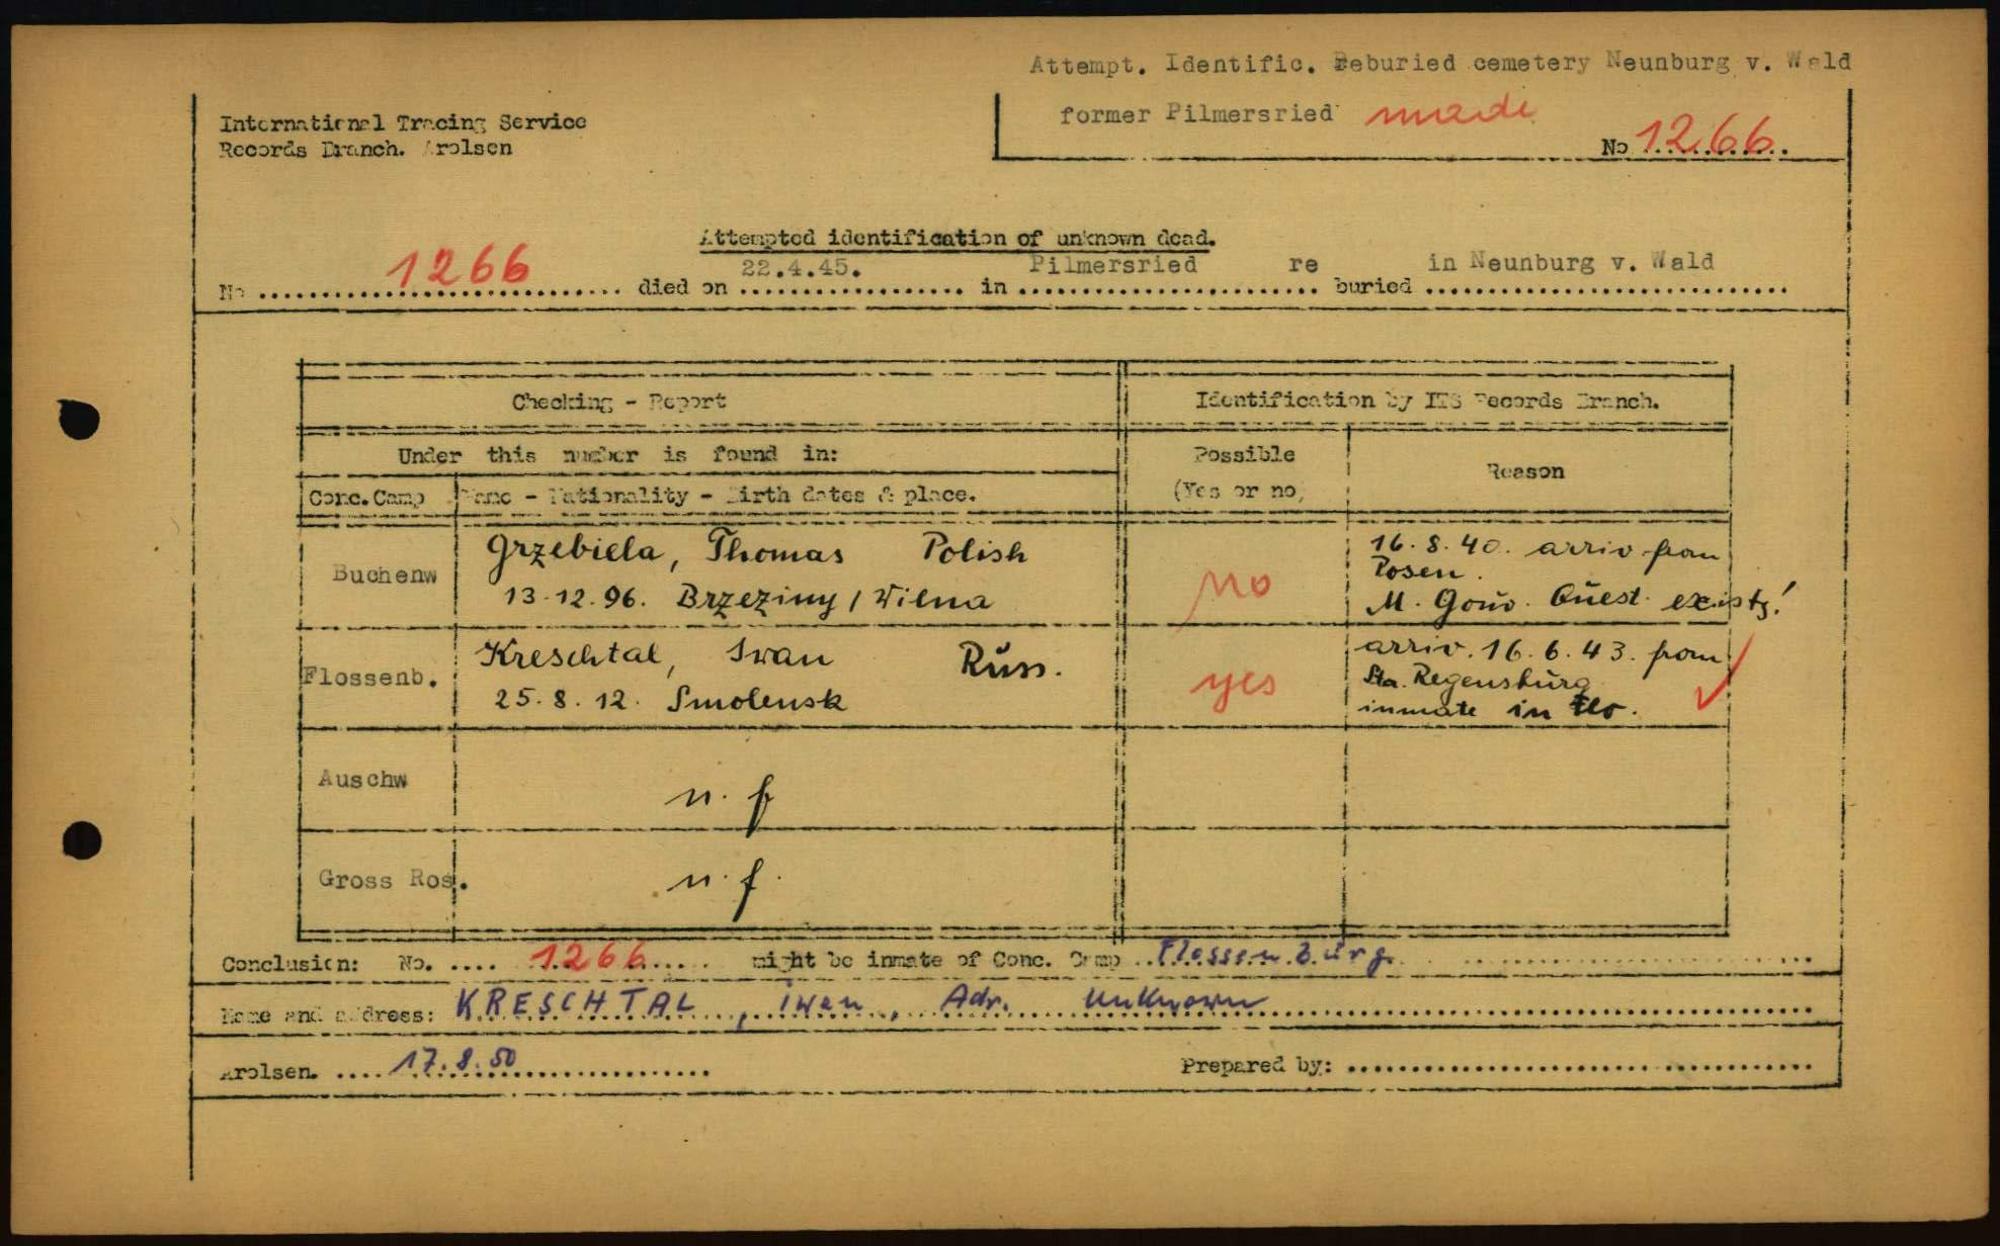 Attempt. Identific. Reburied cemetery Neunburg v. Wald
former Pilmersried made
No 1266
International Tracing Service
Records Branch. Arolsen
Attempted identification of unknown dead.
No 1266 died on 22.4.45. in Pilmersried re buried in Neunburg v. Wald
Checking - Report
Identification by ITS Records Branch.
Under this number is found in:
Possible
(Yes or no)
Reason
Conc. Camp
Name - Nationality - Birth dates & place.
Buchenw
Grzebiela, Thomas Polish
13.12.96. Brzeziny / Wilna
no
16.8.40. arriv from
Posen.
M. Gouv. Quest. exists!
Flossenb.
Kreschtal, Iwan Russ.
25.8.12. Smolensk
yes
arriv. 16.6.43. from
Sta. Regensburg
inmate in Flo.
Auschw
n. f
Gross Ros.
n. f.
Conclusion: No. .... 1266 might be inmate of Conc. Camp Flossenbürg
Name and address: KRESCHTAL, Iwan, Adr. unknown
Arolsen. 17.8.50
Prepared by: